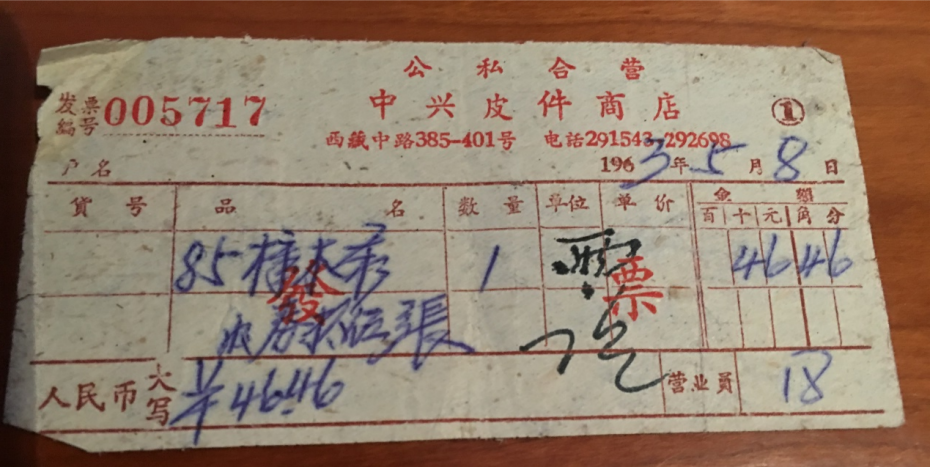 公私合营
发票编号 005717 中兴皮件商店 ①
西藏中路385-401号 电話291543-292698
户名 1963年5月8日
貨号 品名 数量 单位 单价 金額
百 十 元 角 分
85 1 4646
發 票
張
人民币大写 ¥4646 营业员 18